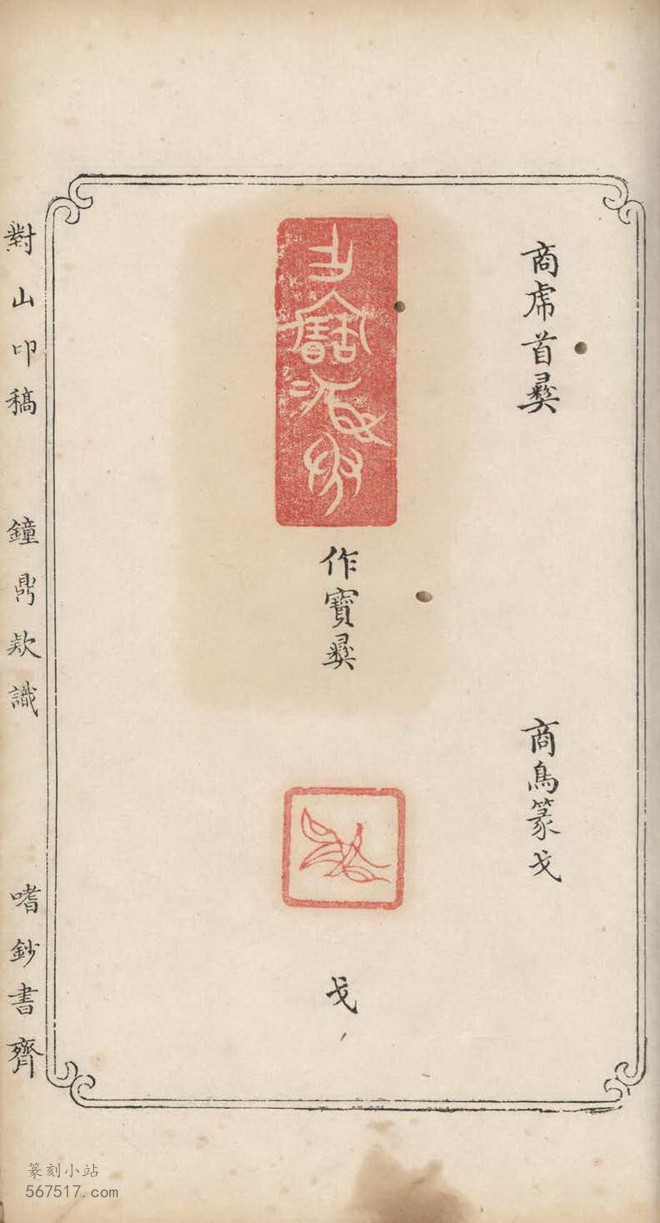 商虎首彝
作寶彝
商鳥篆戈
戈
對山印稿 鐘鼎欵識 嗜鈔書齊
篆刻小站
567517.com